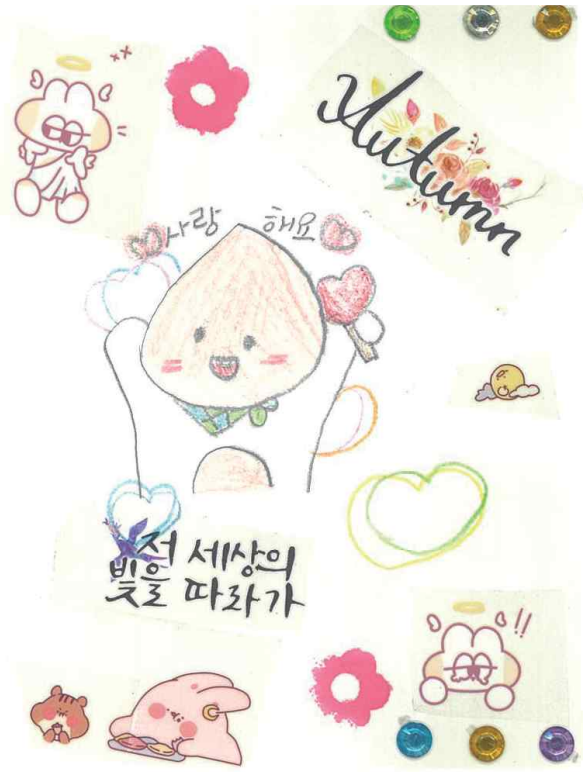 Autumn
사랑해요
저 세상의
빛을 따라가
!!